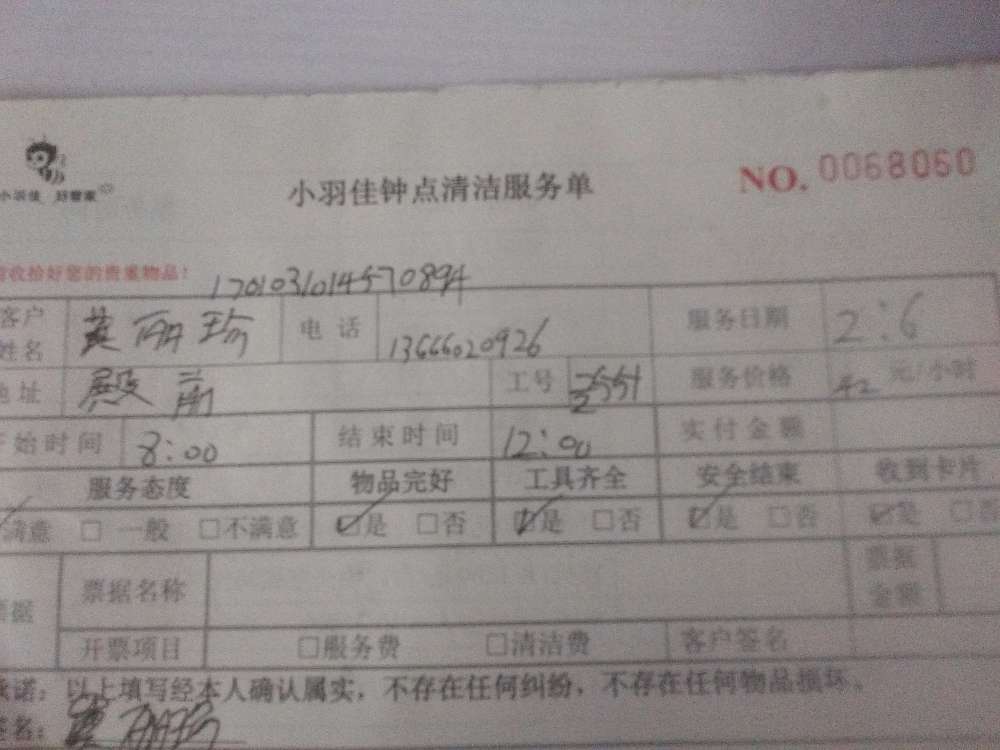 小羽佳 好管家
小羽佳钟点清洁服务单 NO. 0068060
请收拾好您的贵重物品!
17010310145570894
客户姓名 黄丽珍 电话 13666020926 服务日期 2:6
地址 殿前 工号 服务价格 42 元/小时
开始时间 8:00 结束时间 12:00 实付金额
服务态度 物品完好 工具齐全 安全结束 收到卡片
满意 □ 一般 □不满意 ☑是 □否 ☑是 □否 ☑是 □否 ☑是 □否
票据 票据名称 票据金额
开票项目 □服务费 □清洁费 客户签名
承诺:以上填写经本人确认属实,不存在任何纠纷,不存在任何物品损坏。
签名: 黄丽珍